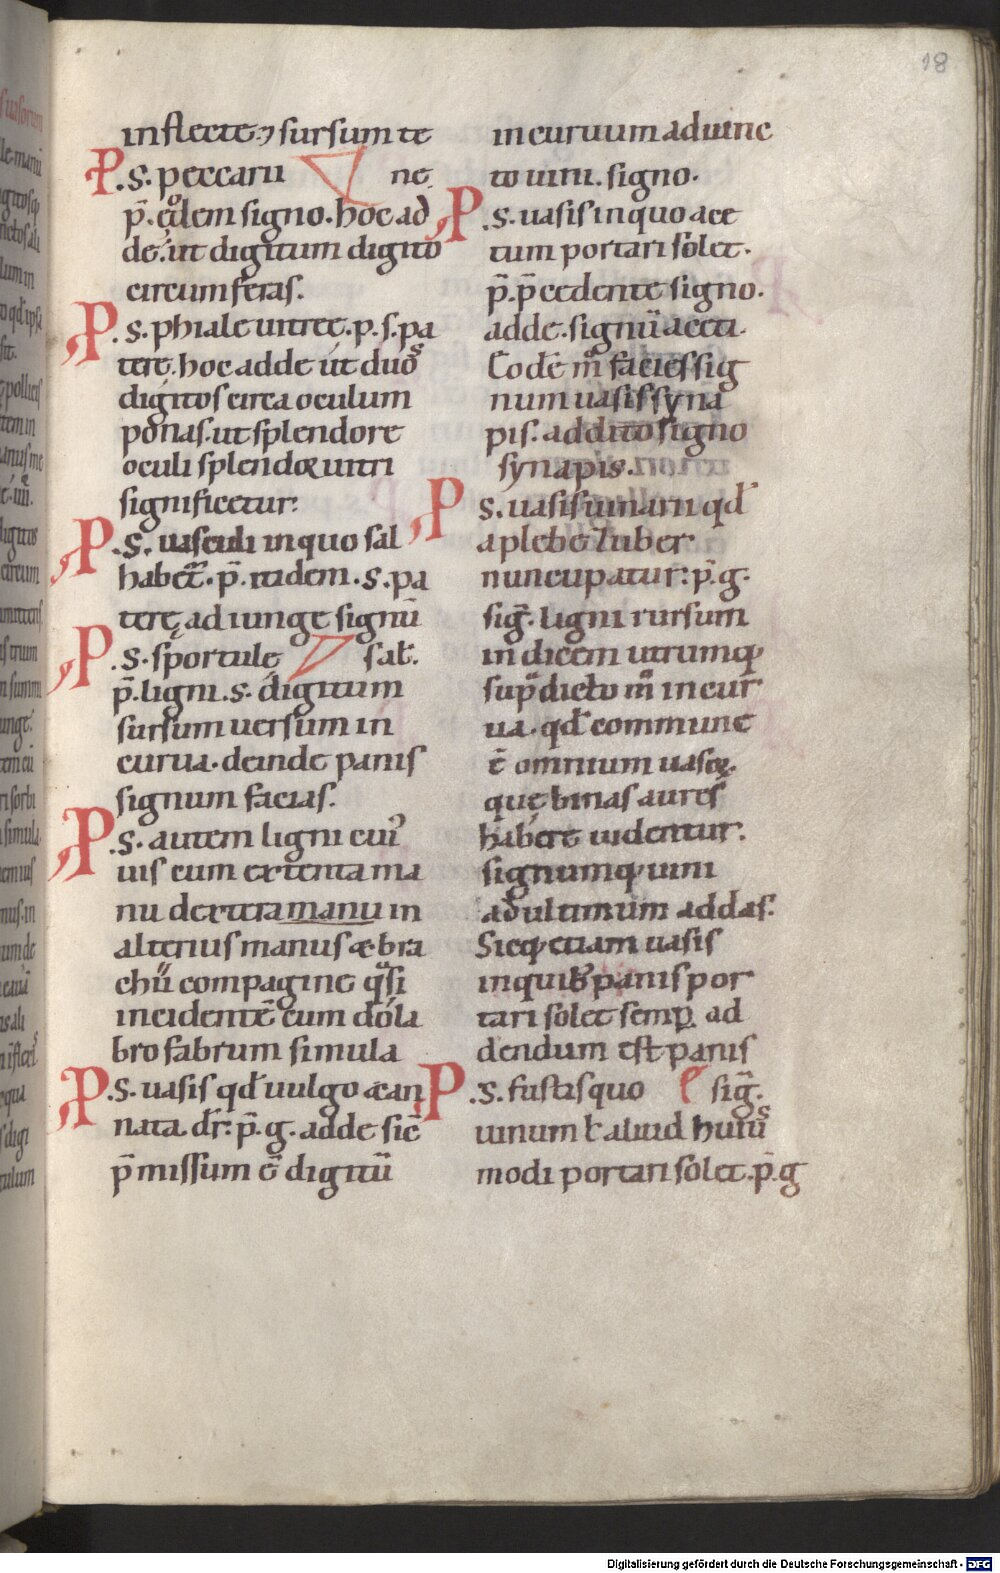 18
inflecte ⁊ sursum te
P.S. peccarii ne.
p̄. eodem signo. hoc ad
de. ut digitum digito
circumferas.
P.S. phiale uitreę. p. s. pa
terę. hoc adde ut duos
digitos circa oculum
ponas. ut splendore
oculi splendor uitri
significetur.
P.S. uasculi in quo sal
habet̄. p̄. itidem. s. pa
terę ad iunge signū
P.S. sportulę sal.
p̄. ligni. s. digitum
sursum uersum in
curua. deinde panis
signum facias.
P.S. autem ligni cui᾽
uis cum extenta ma
nu dextera manu in
alterius manus & bra
chii compagine qͣsi
incidentē cum dola
bro fabrum simula
P.S. uasis qđ uulgo & can
nata dr̄. p̄. g. adde sic̄
p̄missum ē digitū
incuruum aduinc
to uini. signo.
P.S. uasis in quo ace
tum portari solet.
p̄. p̄cedente signo.
adde. signū aceti.
Eodē mͦ facies sig
num uasis syna
pis. addito signo
synapis.
P.S. uasis uinarii qđ
a plebe zuber
nuncupatur: p̄. g.
siḡ. ligni rursum
indicem utrumqꝫ
sup̄dicto mͦ incur
ua. qđ commune
ē omnium uasoꝝ.
quę binas aures
habere uidentur.
signumqꝫ uini
ad ultimum addas.
Sicqꝫ etiam uasis
in quibꝫ panis por
tari solet semp̱ ad
dendum est panis
P.S. fustis quo siḡ.
uinum ł aliud huius
modi portari solet. p̄. g
Digitalisierung gefördert durch die Deutsche Forschungsgemeinschaft - DFG